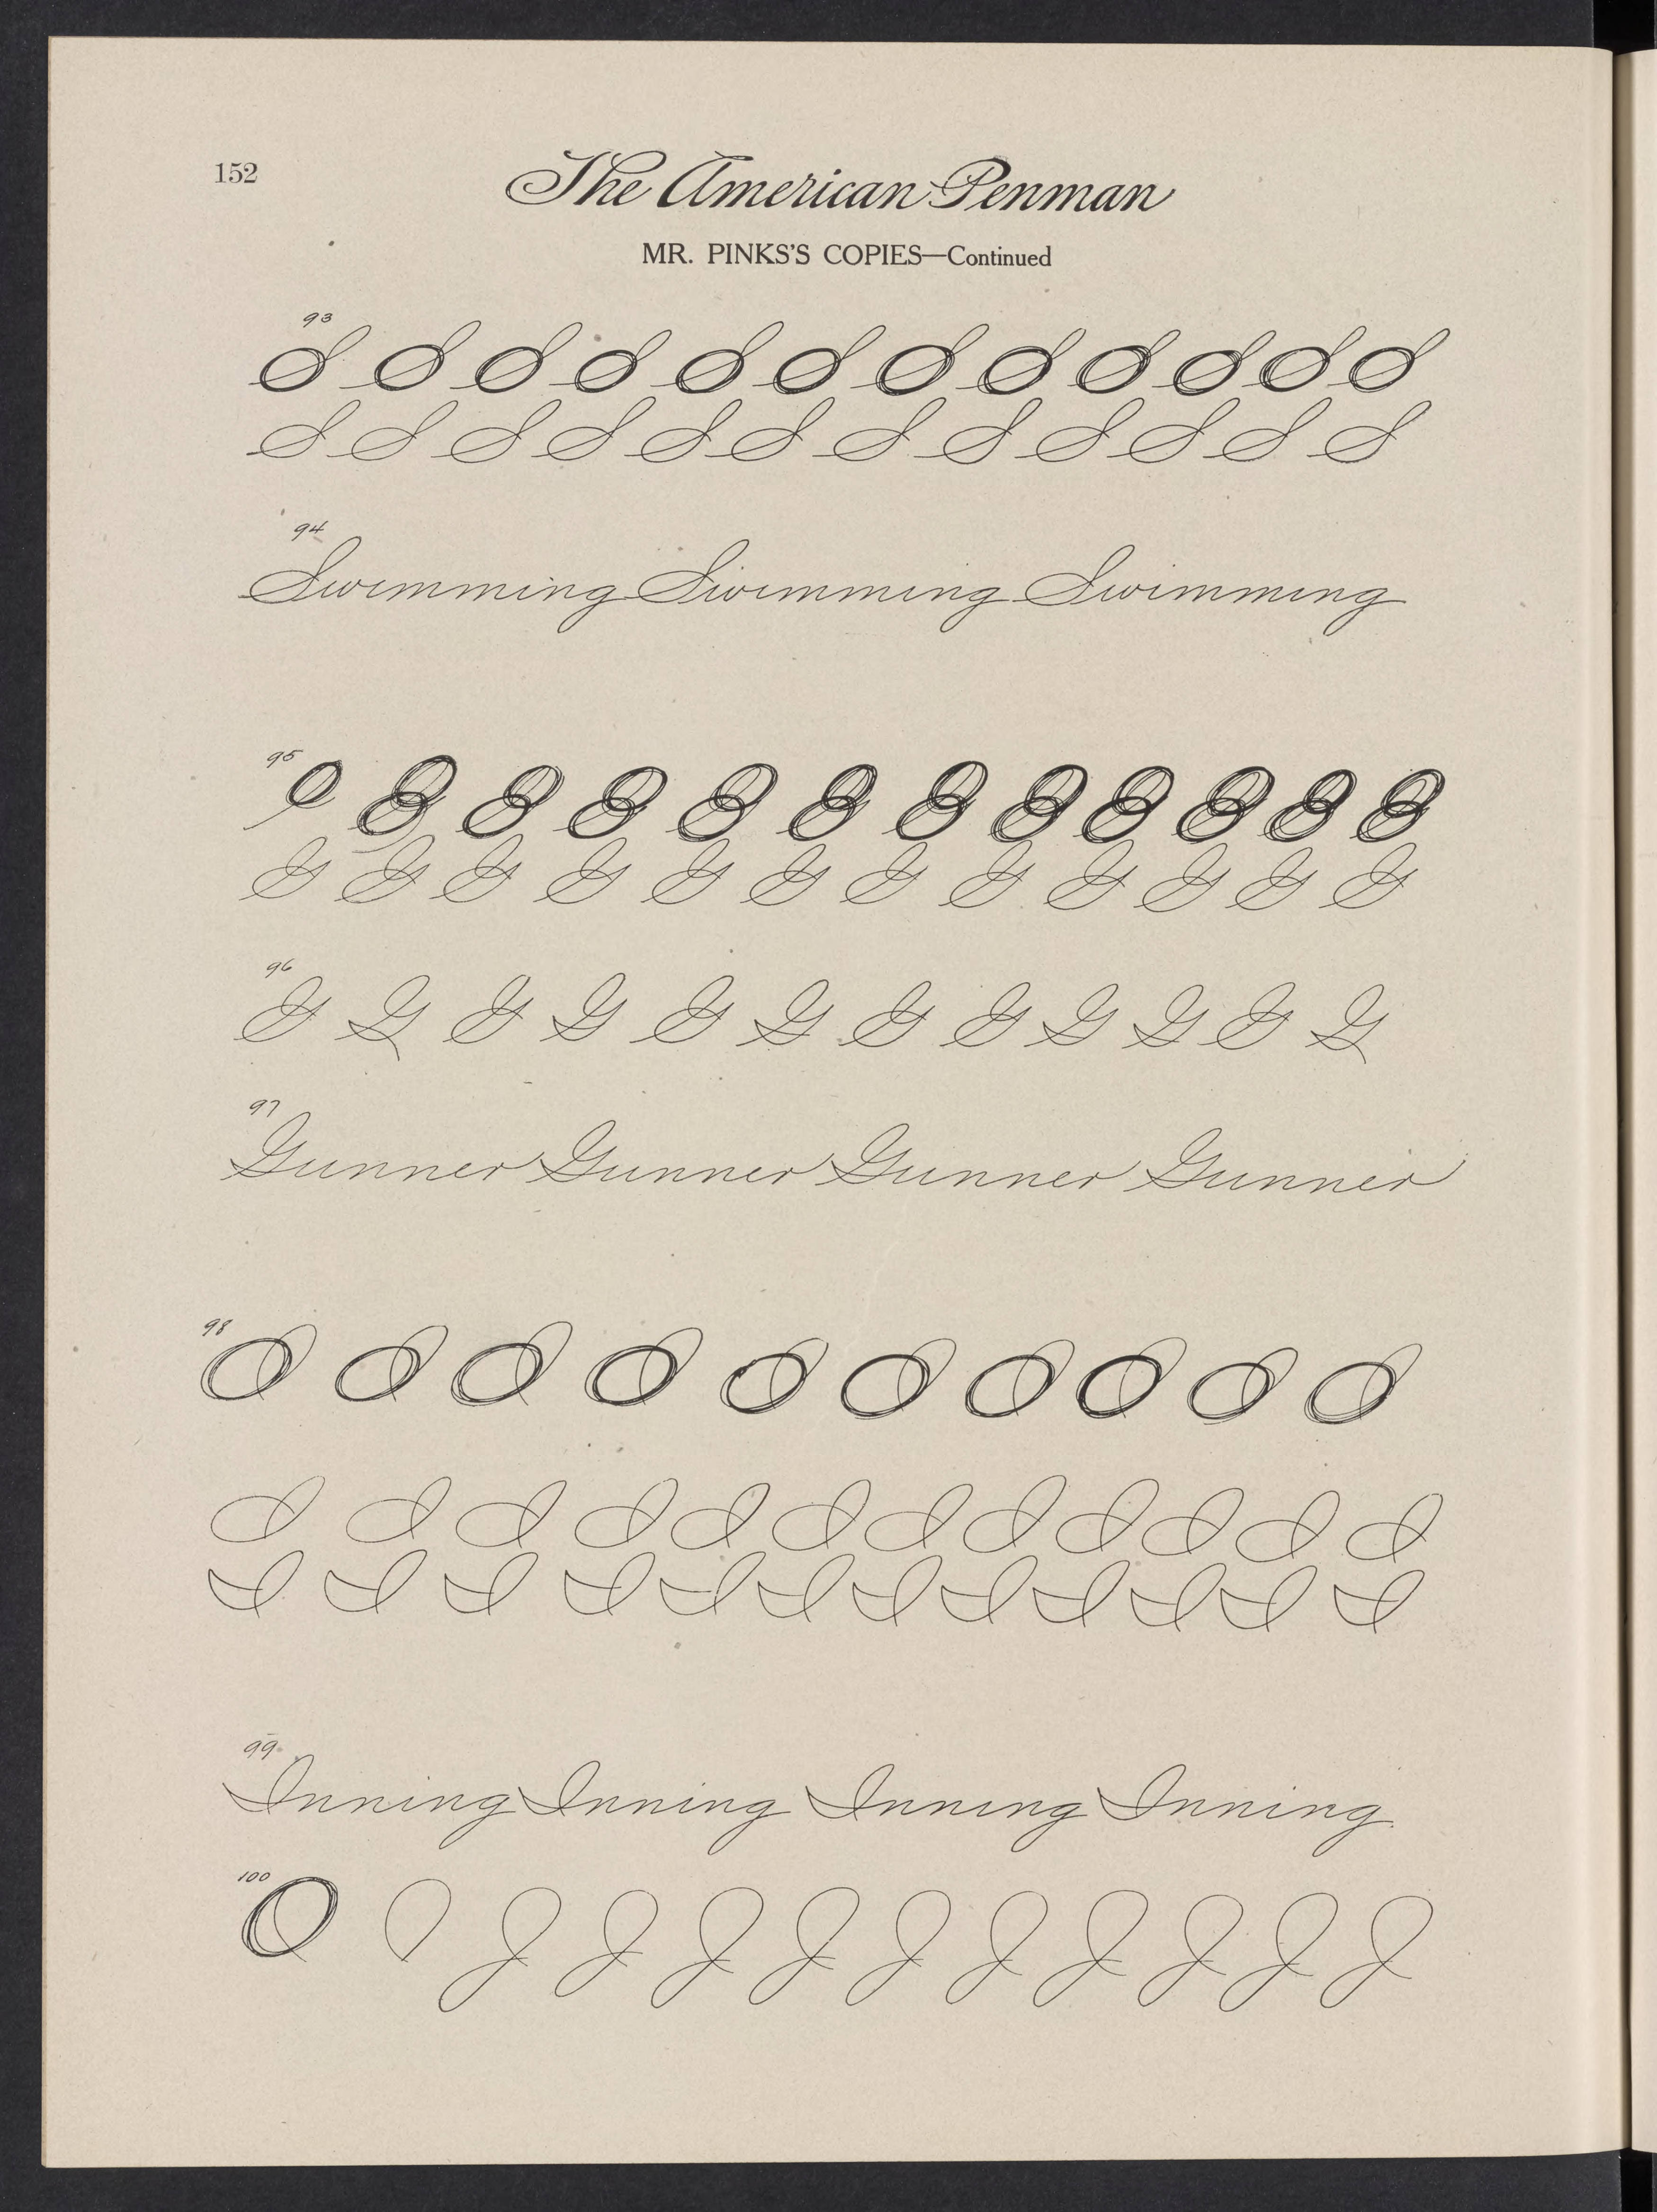 152
The American Penman
MR. PINKS'S COPIES—Continued
93
S S S S S S S S S S S S
94
Swimming Swimming Swimming
95
G G G G G G G G G G G G
96
G G G G G G G G G G G G
97
Gunner Gunner Gunner Gunner
98
I I I I I I I I I I I I
I I I I I I I I I I I I
99
Inning Inning Inning Inning
100
J J J J J J J J J J